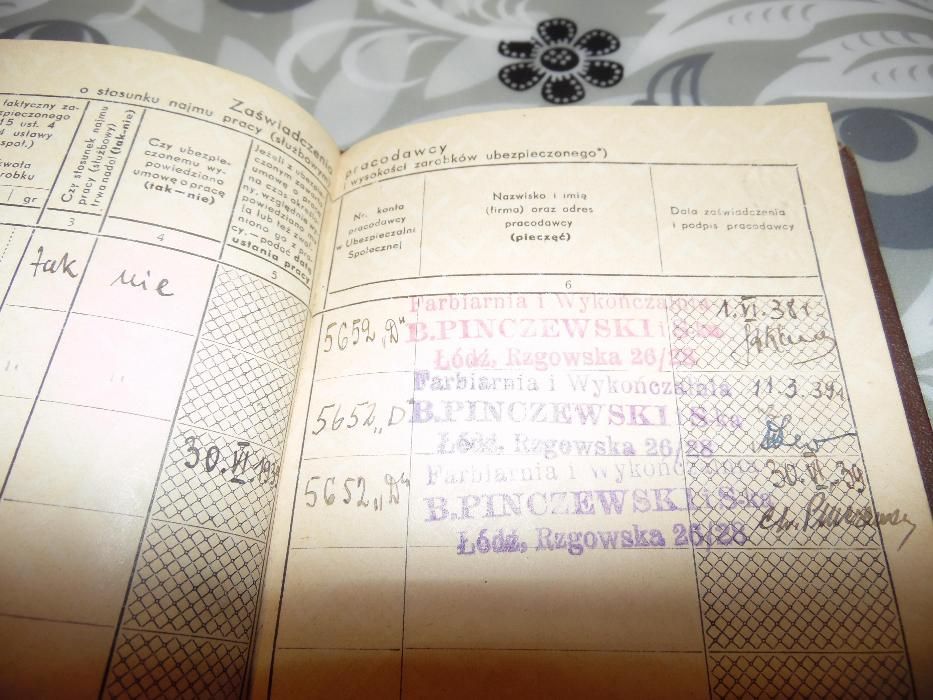 o stosunku najmu pracy (służbowym)
Zaświadczenie
faktyczny za-
15 ust. 4
ustawy
gr
Czy stosunek najmu
pracy (służbowy)
trwa nadal (tak-nie)
Czy ubezpie-
czonemu wy-
powiedziano
umowę o pracę
(tak—nie)
powiedziano mu
ją lub też zwol-
niono go z pra-
cy,—podać datę
ustania pracy
3
4
5
tak
nie
30.VI 1939
pracodawcy
wysokości zarobków ubezpieczonego*)
Nr. konta
pracodawcy
w Ubezpieczalni
Społecznej
Nazwisko i imię
(firma) oraz adres
pracodawcy
(pieczęć)
Data zaświadczenia
i podpis pracodawcy
6
5652 „D"
Farbiarnia i Wykończalnia
B. PINCZEWSKI i S-ka
Łódź, Rzgowska 26/28
1.VI.38r.
5652 „D"
Farbiarnia i Wykończalnia
B. PINCZEWSKI i S-ka
Łódź, Rzgowska 26/28
11.3.39r
5652 „D"
Farbiarnia i Wykończalnia
B. PINCZEWSKI i S-ka
Łódź, Rzgowska 26/28
30.VI.39